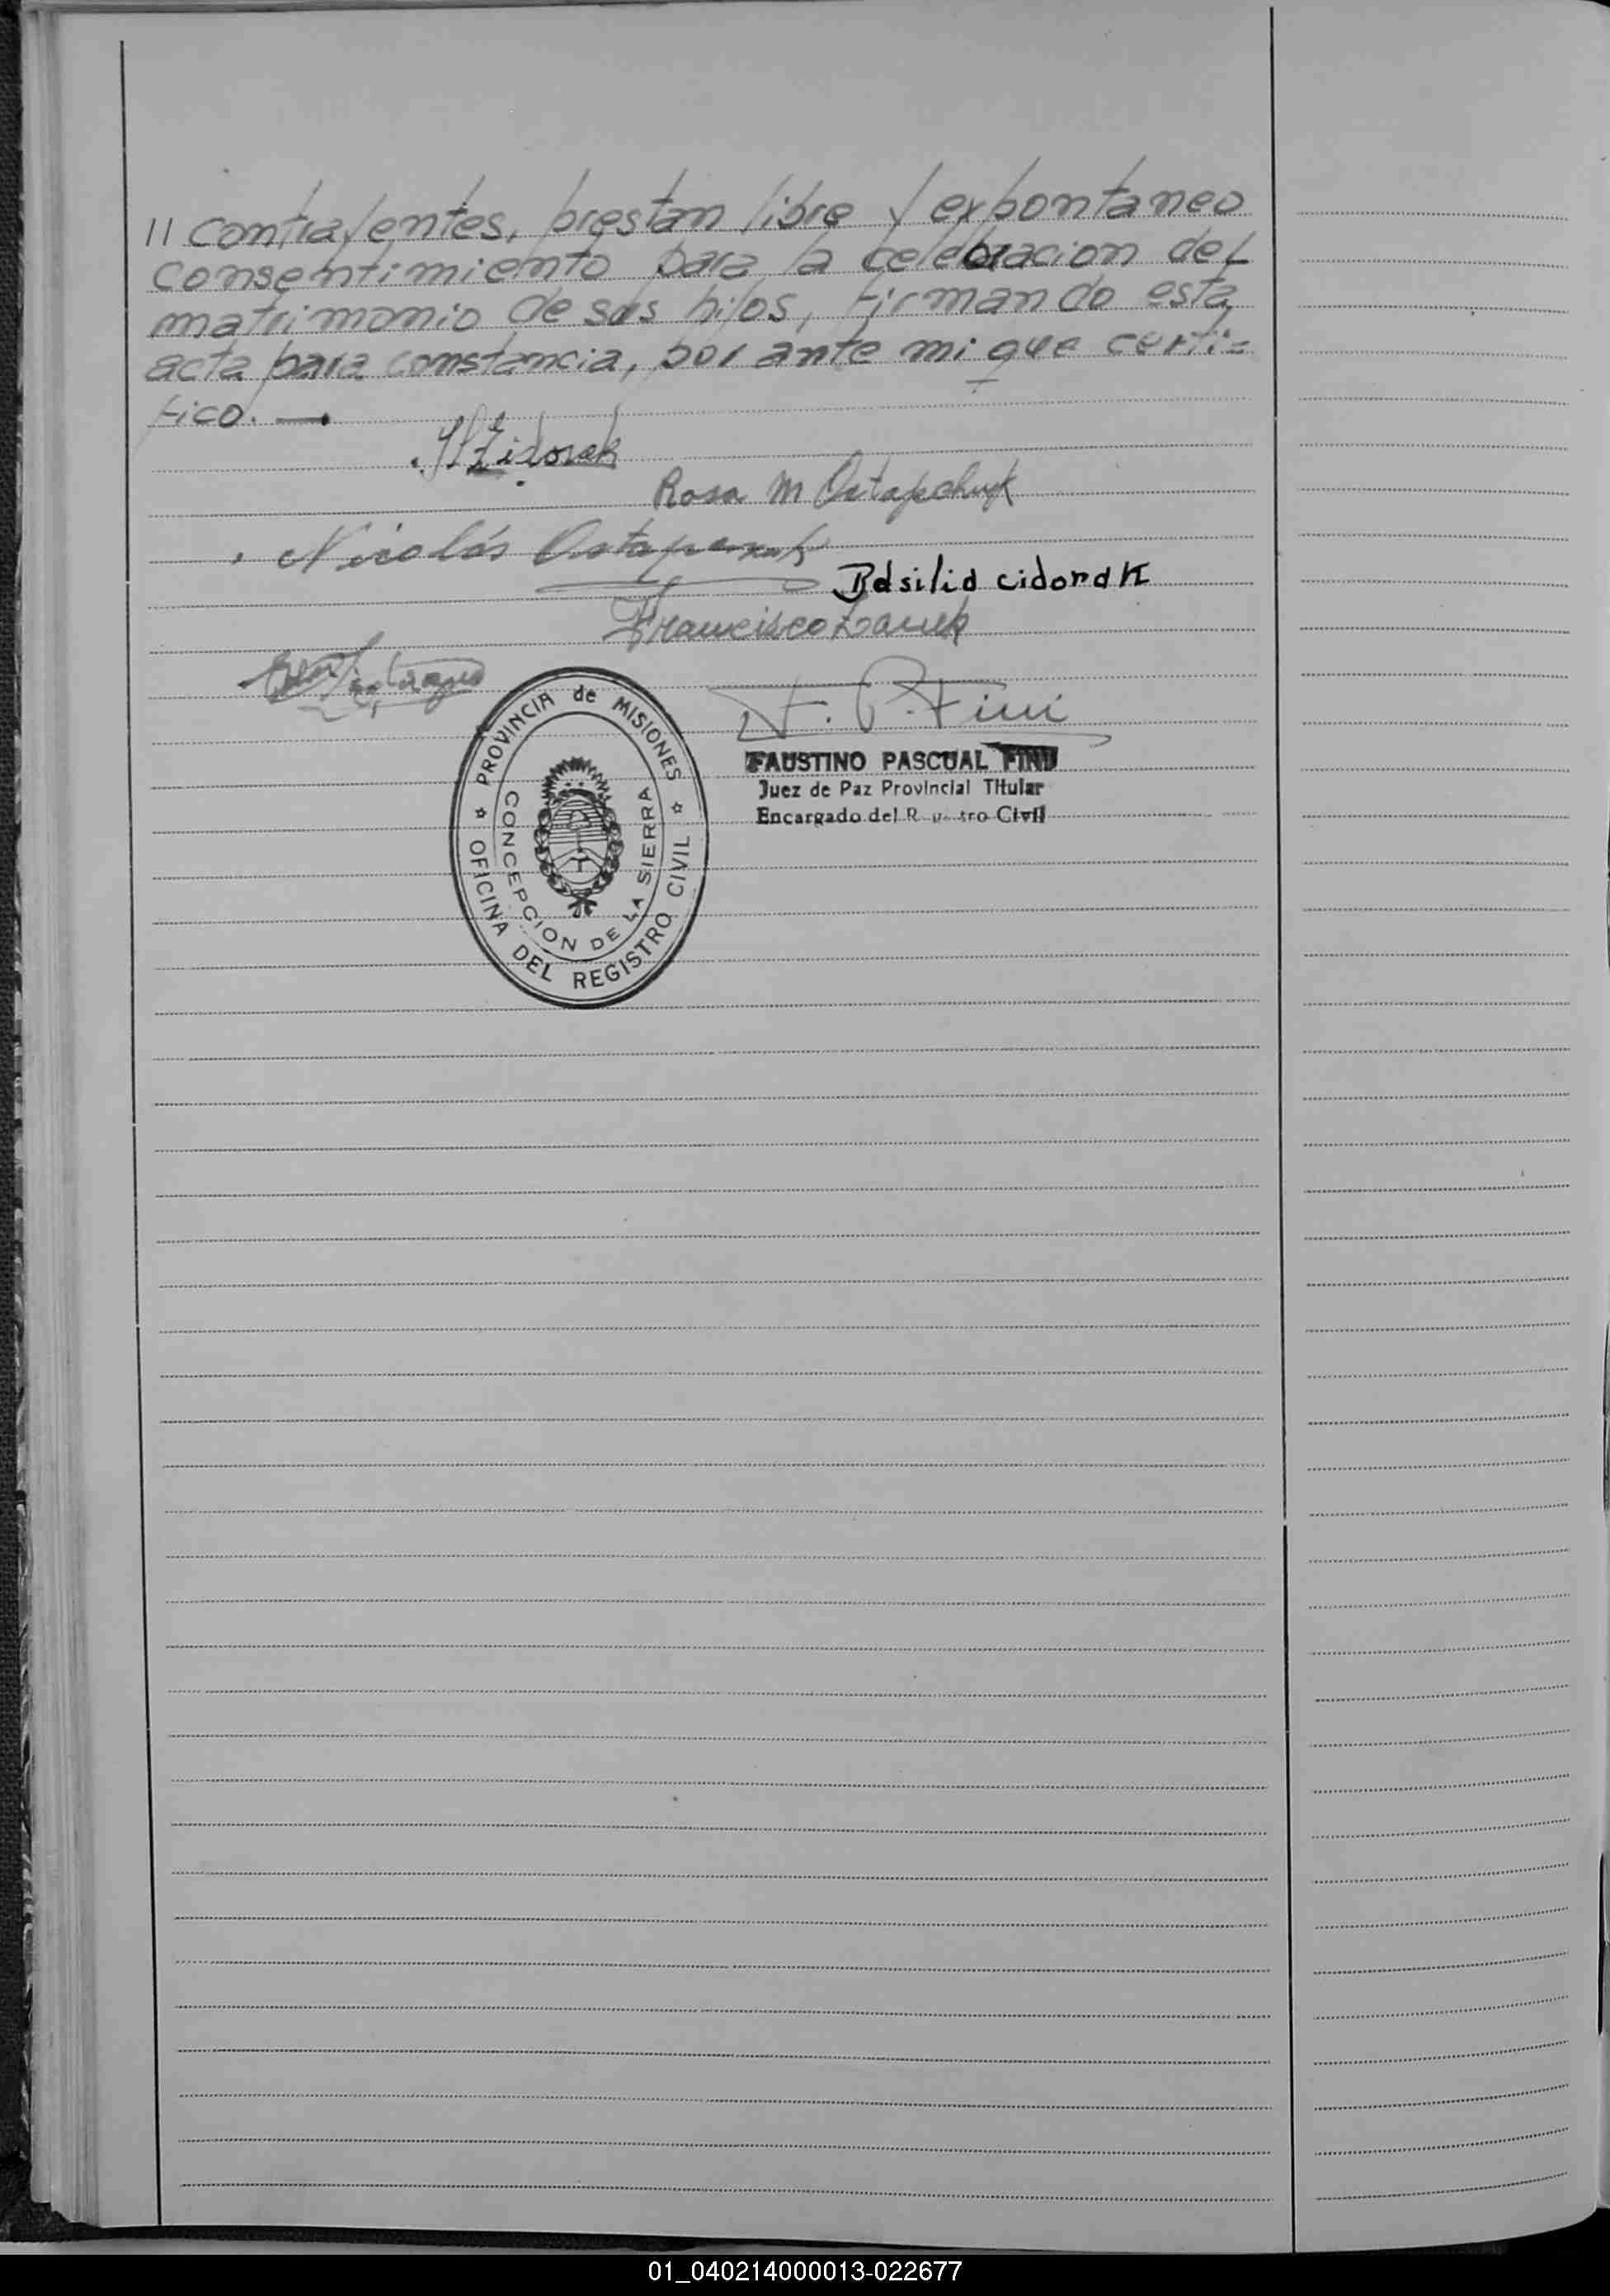 // contrayentes, prestan libre y expontaneo
consentimiento para la celebracion del
matrimonio de sus hijos, firmando esta
acta para constancia, por ante mi que certi=
fico. —
Zidorak
Rosa M Ostapchuk
Nicolás
Basilia cidorak
Francisco
F. P. Fini
PROVINCIA de MISIONES
OFICINA DEL REGISTRO CIVIL
CONCEPCION DE LA SIERRA
FAUSTINO PASCUAL FINI
Juez de Paz Provincial Titular
Encargado del Registro Civil
01_040214000013-022677